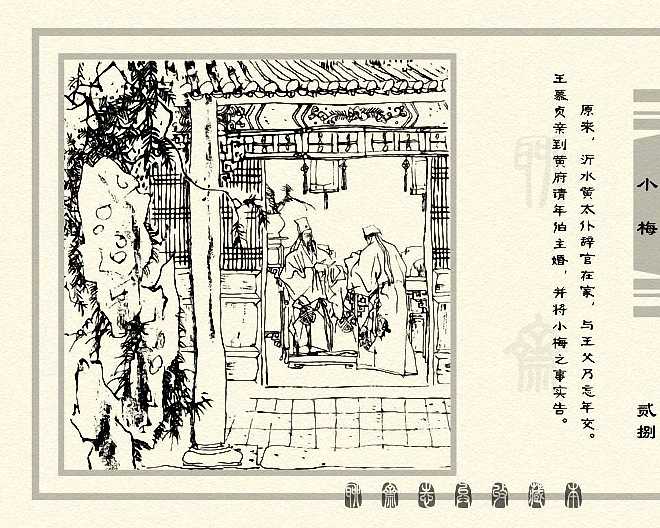 原来，沂水黄太仆辞官在家，与王父乃忘年交。
王慕贞亲到黄府请年伯主婚，并将小梅之事实告。
小梅
贰捌
聊斋志异收藏本